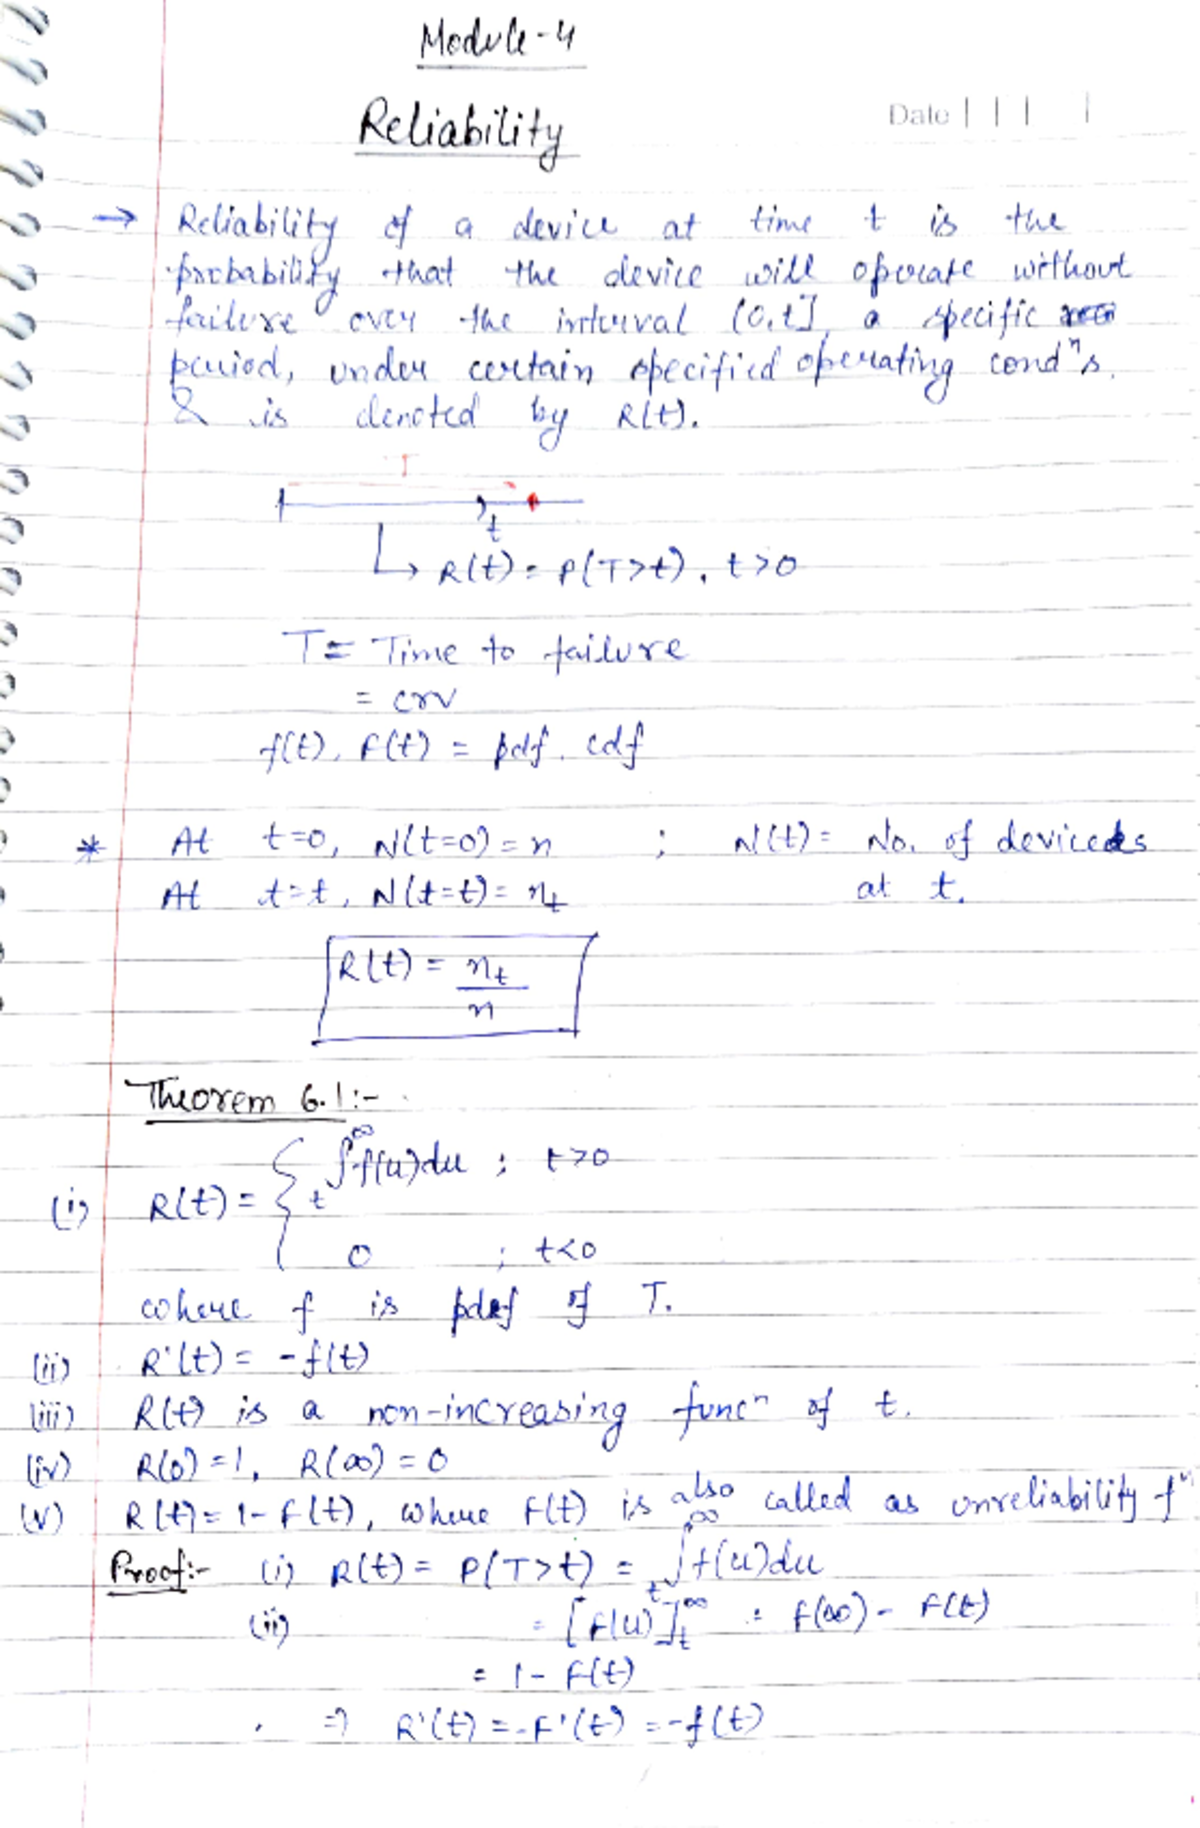 Module-4
Reliability
Date
→ Reliability of a device at time t is the
probability that the device will operate without
failure over the interval (0,t], a specific
period, under certain specified operating condⁿs.
& is denoted by R(t).
T
t
↳ R(t) = P(T>t), t>0
T = Time to failure
= crv
f(t), F(t) = pdf, cdf
* At t=0, N(t=0) = n ; N(t) = No. of devices
At t=t, N(t=t) = n_t at t.
R(t) = n_t / n
Theorem 6.1:-
(i) R(t) = { ∫_t^∞ f(u)du ; t>0
0 ; t<0
where f is pdf of T.
(ii) R'(t) = -f(t)
(iii) R(t) is a non-increasing funcⁿ of t.
(iv) R(0)=1, R(∞)=0
(v) R(t) = 1-F(t), where F(t) is also called as unreliability fⁿ
Proof:- (i) R(t) = P(T>t) = ∫_t^∞ f(u)du
(ii) = [F(u)]_t^∞ = F(∞) - F(t)
= 1 - F(t)
⇒ R'(t) = -F'(t) = -f(t)